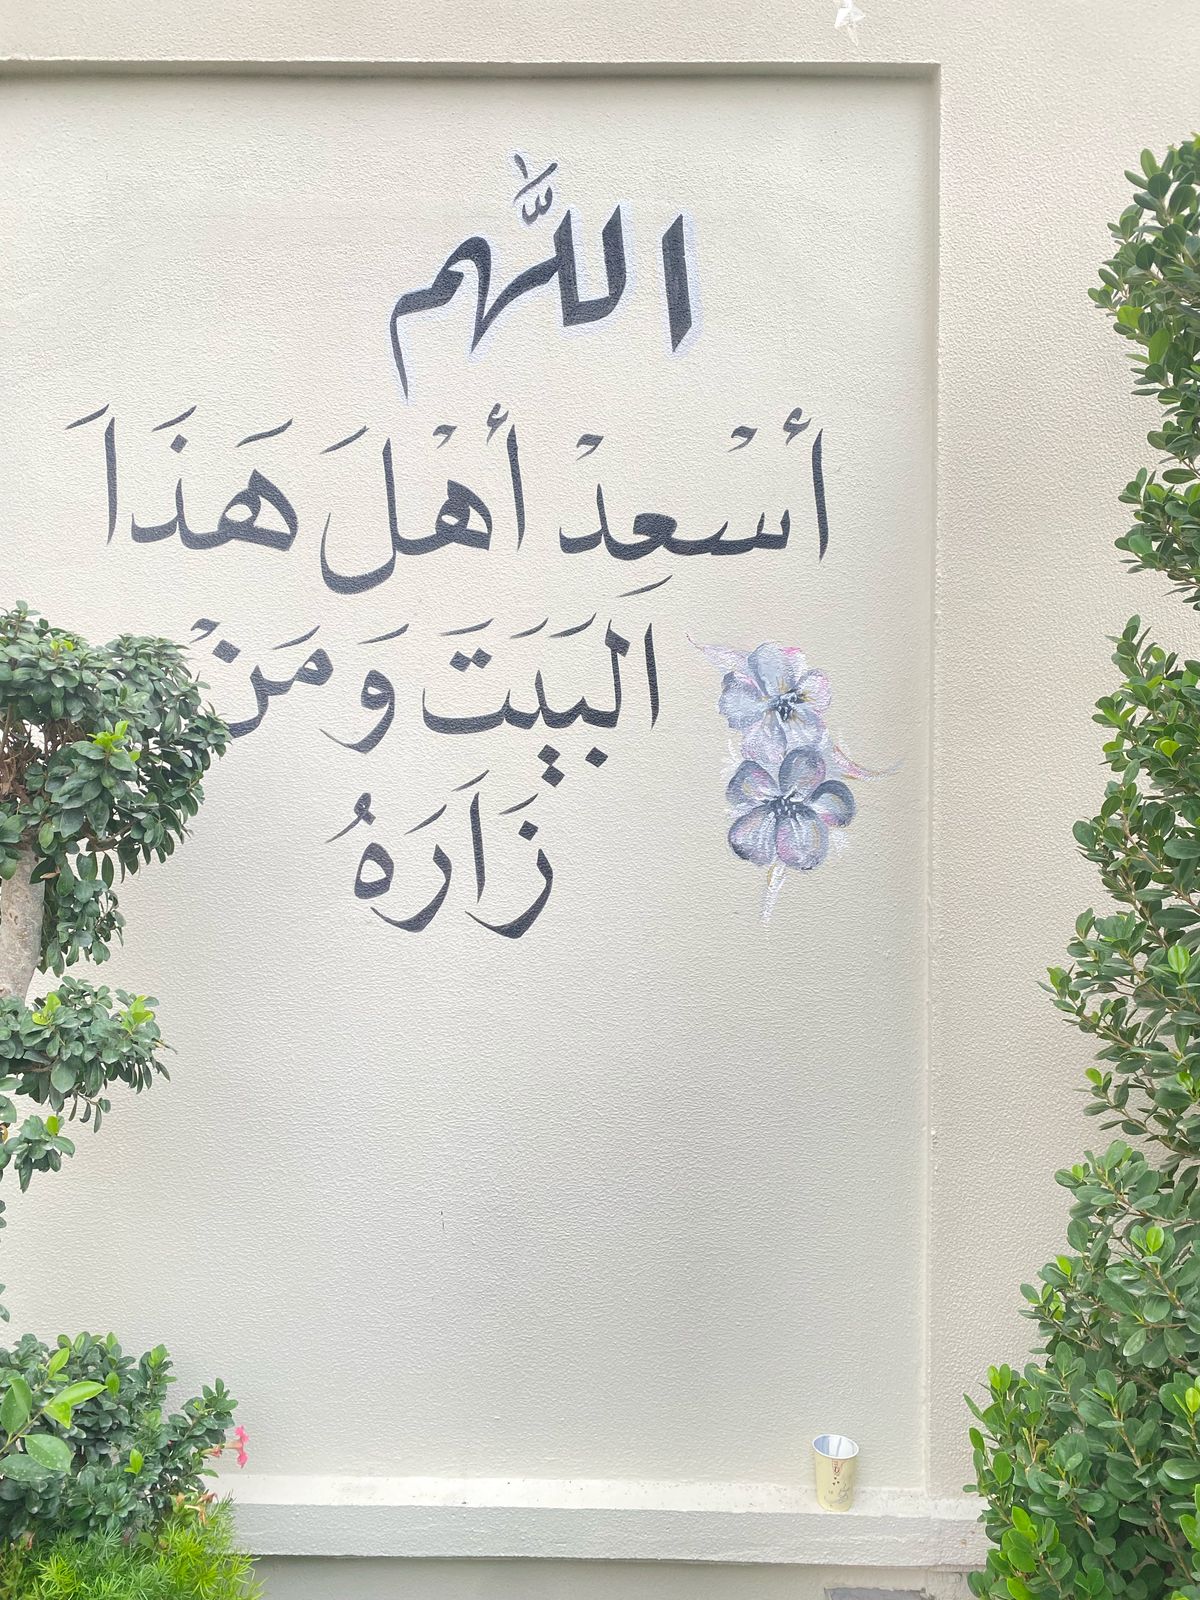 اللَّهم
أَسْعِدْ أَهْلَ هَذَا
البَيَتَ وَمَنْ
زَارَهُ